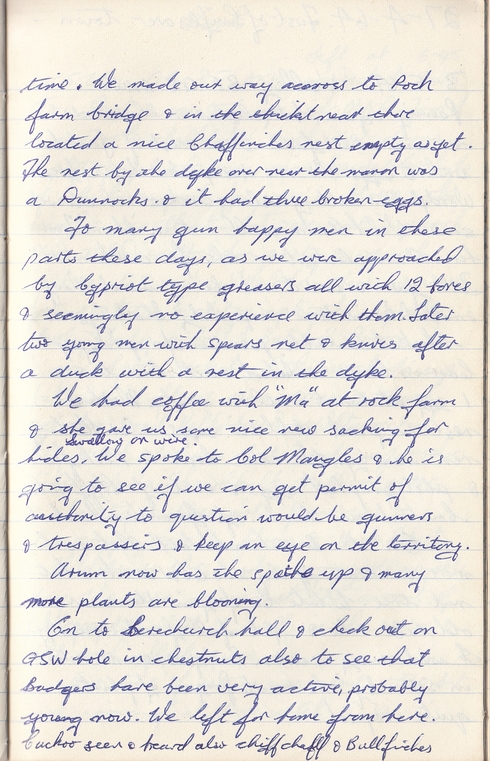 time. We made our way accross to Roch
farm bridge & in the thicket near there
located a nice Chaffinches nest empty as yet.
The nest by the dyke over near the manor was
a Dunnocks. & it had three broken eggs.
To many gun happy men in these
parts these days, as we were approached
by Cypriot type greasers all with 12 bores
& seemingly no experience with them. Later
two young men with spears net & knives after
a duck with a nest in the dyke.
We had coffee with "Ma" at rock farm
& she gave us some nice new sacking for
Swallow on wire.
hides. We spoke to Col Mangles & he is
going to see if we can get permit of
authority to question would be gunners
& trespassers & keep an eye on the territory.
Arum now has the spathe up & many
more plants are blooming.
On to Berechurch hall & check out on
GSW hole in chestnuts also to see that
Badgers have been very active, probably
young now. We left for home from here.
Cuckoo seen & heard also chiffchaff & Bullfiches